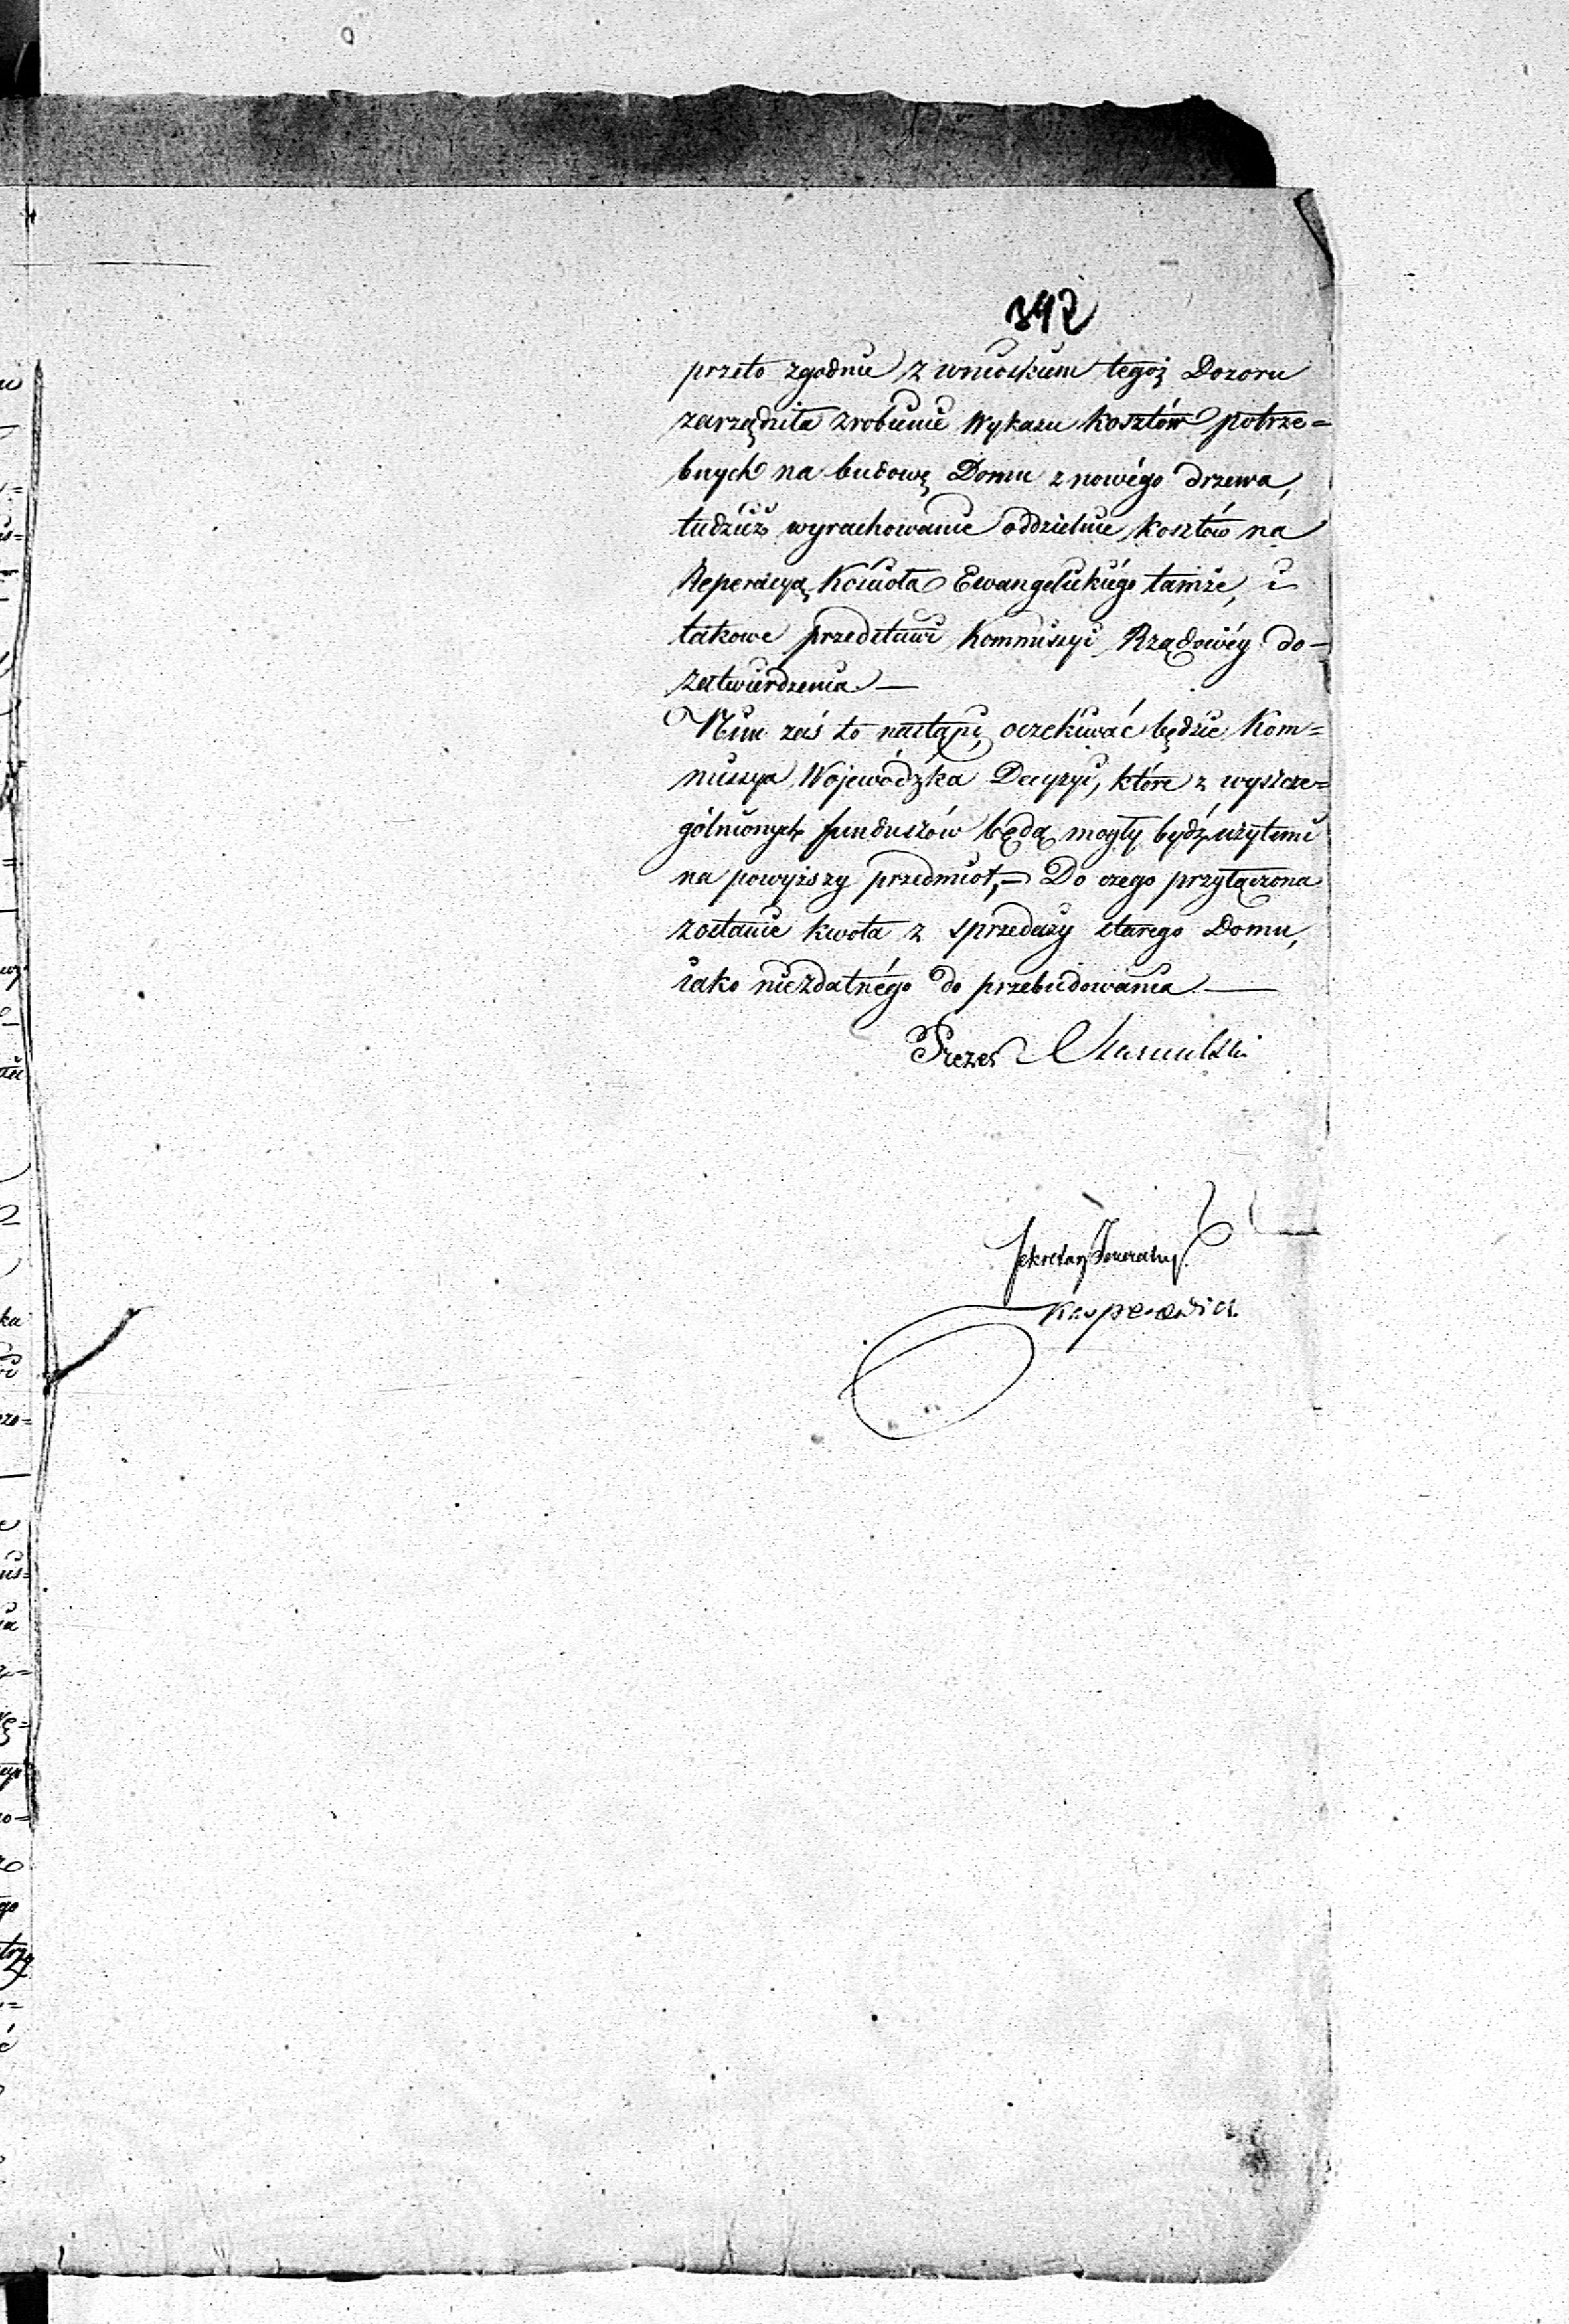 342
przeto zgodnie z wnioskiem tegoż Dozoru
zarządziła zrobienie Wykazu kosztów potrze=
bnych na budowę Domu z nowégo drzewa,
tudzież wyrachowanie oddzielnie kosztów na
Reperacyą Kościoła Ewangelickiégo tamże, i
takowe przedstawi Kommissyi Rządowéy do-
zatwierdzenia. —
Nim zaś to nastąpi, oczekiwać będzie Kom=
missya Wojewódzka Decyzyi, które z wyszcze=
gólnionych funduszów będą mogły bydź użytemi
na powyższy przedmiot, — Do czego przyłączona
zostanie kwota z sprzedaży starego Domu,
iako niezdatnégo do przebudowania. —
Prezes
Sekretarz Jeneralny